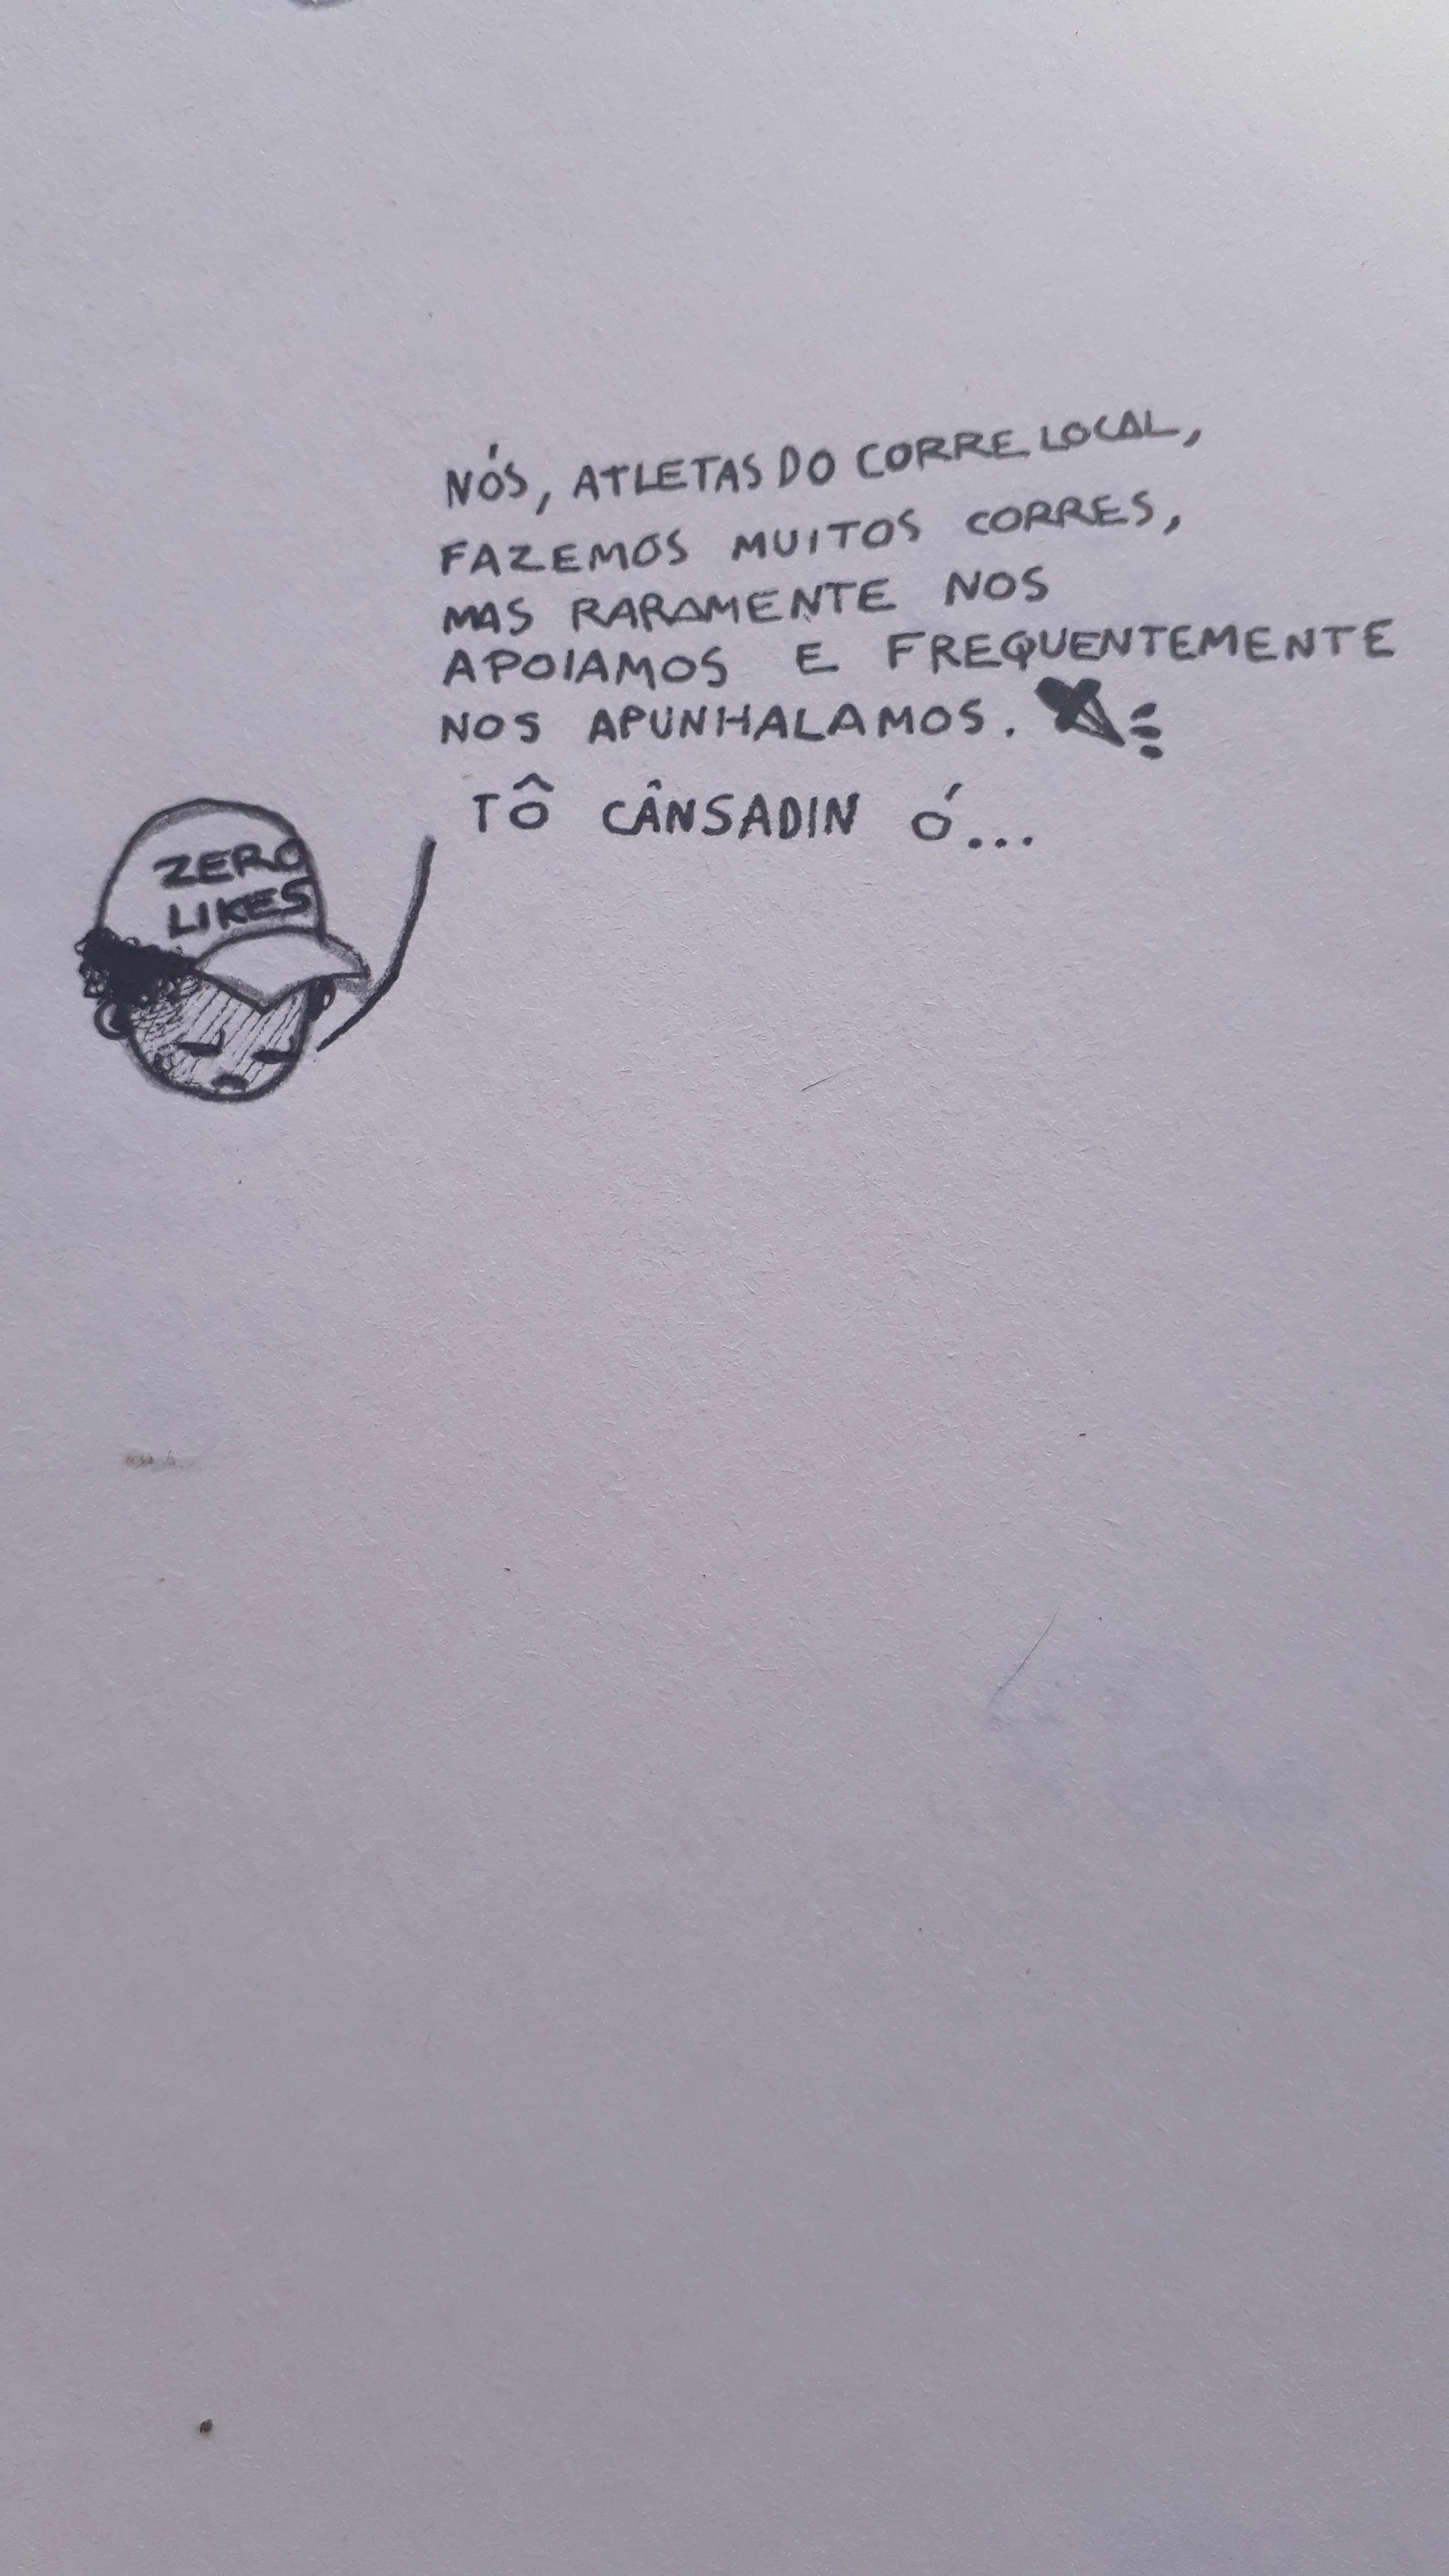 NÓS, ATLETAS DO CORRE LOCAL,
FAZEMOS MUITOS CORRES,
MAS RARAMENTE NOS
APOIAMOS E FREQUENTEMENTE
NOS APUNHALAMOS.
TÔ CÂNSADIN Ó...
ZERO
LIKES